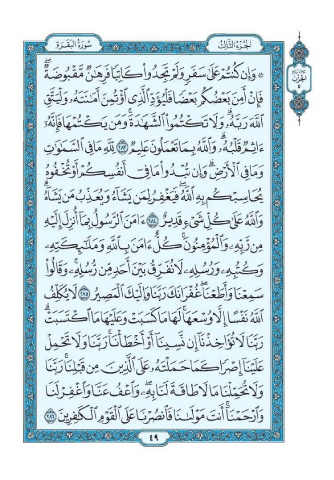 سُورَةُ البَقَرَةِ الجُزْءُ الثَّالِثُ
۞ وَإِن كُنتُمْ عَلَىٰ سَفَرٍ وَلَمْ تَجِدُوا۟ كَاتِبًا فَرِهَـٰنٌ مَّقْبُوضَةٌ ۖ
فَإِنْ أَمِنَ بَعْضُكُم بَعْضًا فَلْيُؤَدِّ ٱلَّذِى ٱؤْتُمِنَ أَمَـٰنَتَهُۥ وَلْيَتَّقِ
ٱللَّهَ رَبَّهُۥ ۗ وَلَا تَكْتُمُوا۟ ٱلشَّهَـٰدَةَ ۚ وَمَن يَكْتُمْهَا فَإِنَّهُۥٓ
ءَاثِمٌ قَلْبُهُۥ ۗ وَٱللَّهُ بِمَا تَعْمَلُونَ عَلِيمٌ ٢٨٣ لِّلَّهِ مَا فِى ٱلسَّمَـٰوَٰتِ
وَمَا فِى ٱلْأَرْضِ ۗ وَإِن تُبْدُوا۟ مَا فِىٓ أَنفُسِكُمْ أَوْ تُخْفُوهُ
يُحَاسِبْكُم بِهِ ٱللَّهُ ۖ فَيَغْفِرُ لِمَن يَشَآءُ وَيُعَذِّبُ مَن يَشَآءُ ۗ
وَٱللَّهُ عَلَىٰ كُلِّ شَىْءٍ قَدِيرٌ ٢٨٤ ءَامَنَ ٱلرَّسُولُ بِمَآ أُنزِلَ إِلَيْهِ
مِن رَّبِّهِۦ وَٱلْمُؤْمِنُونَ ۚ كُلٌّ ءَامَنَ بِٱللَّهِ وَمَلَـٰٓئِكَتِهِۦ
وَكُتُبِهِۦ وَرُسُلِهِۦ لَا نُفَرِّقُ بَيْنَ أَحَدٍ مِّن رُّسُلِهِۦ ۚ وَقَالُوا۟
سَمِعْنَا وَأَطَعْنَا ۖ غُفْرَانَكَ رَبَّنَا وَإِلَيْكَ ٱلْمَصِيرُ ٢٨٥ لَا يُكَلِّفُ
ٱللَّهُ نَفْسًا إِلَّا وُسْعَهَا ۚ لَهَا مَا كَسَبَتْ وَعَلَيْهَا مَا ٱكْتَسَبَتْ ۗ
رَبَّنَا لَا تُؤَاخِذْنَآ إِن نَّسِينَآ أَوْ أَخْطَأْنَا ۚ رَبَّنَا وَلَا تَحْمِلْ
عَلَيْنَآ إِصْرًا كَمَا حَمَلْتَهُۥ عَلَى ٱلَّذِينَ مِن قَبْلِنَا ۚ رَبَّنَا
وَلَا تُحَمِّلْنَا مَا لَا طَاقَةَ لَنَا بِهِۦ ۖ وَٱعْفُ عَنَّا وَٱغْفِرْ لَنَا
وَٱرْحَمْنَآ ۚ أَنتَ مَوْلَىٰنَا فَٱنصُرْنَا عَلَى ٱلْقَوْمِ ٱلْكَـٰفِرِينَ ٢٨٦
٤٩